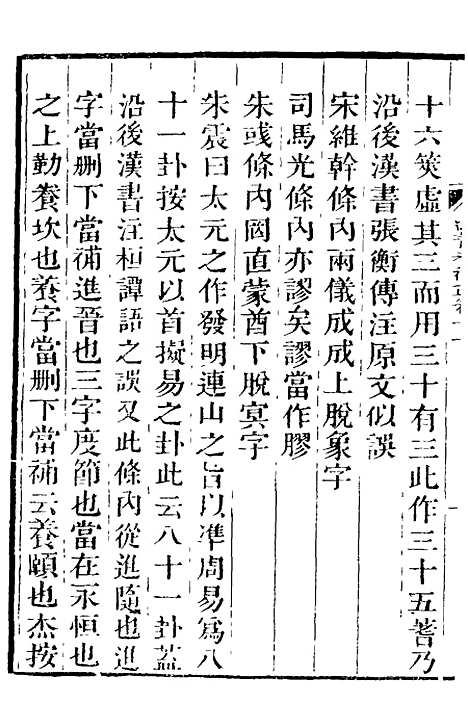 十六筴虛其三而用三十有三此作三十五蓍乃
沿後漢書張衡傳注原文似誤
宋維幹條內兩儀成成上脫象字
司馬光條內亦謬矣謬當作膠
朱彧條內罔直蒙酋下脫冥字
朱震曰太元之作發明連山之旨以準周易爲八
十一卦按太元以首擬易之卦此云八十一卦葢
沿後漢書注桓譚語之誤又此條內從進隨也進
字當刪下當補進晉也三字度節也當在永恒也
之上勤養坎也養字當刪下當補云養頤也杰按